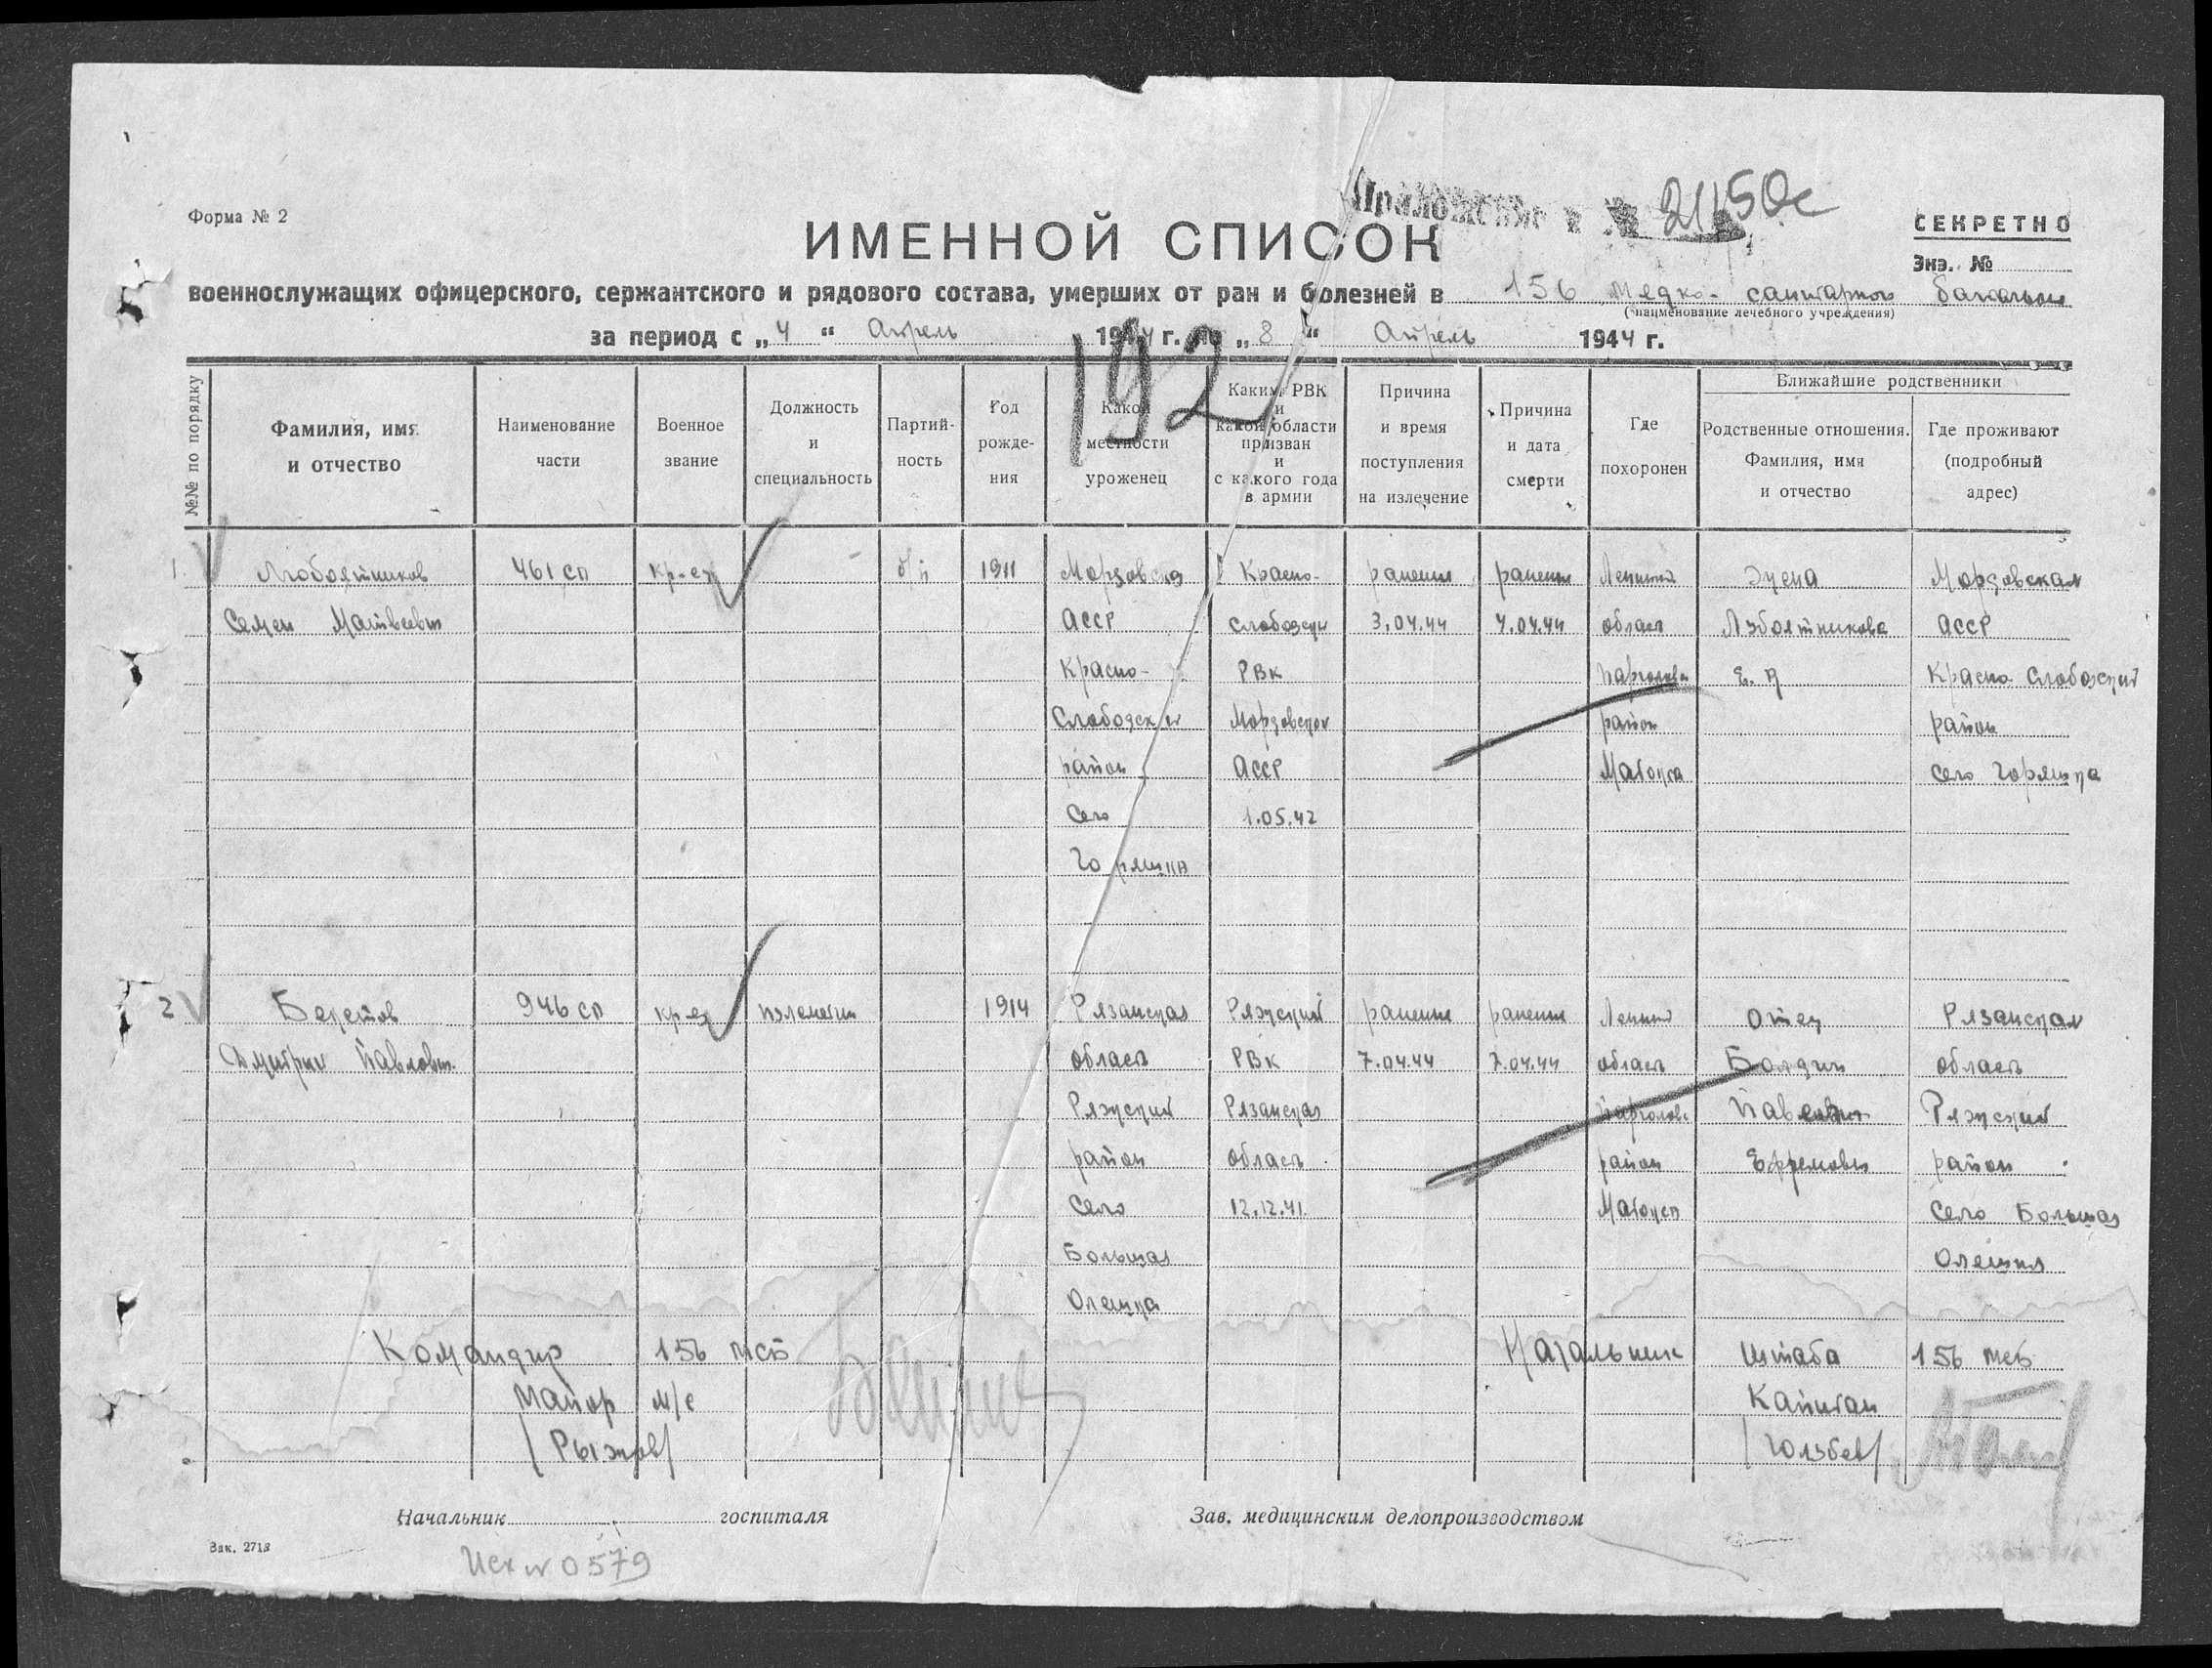 Форма № 2
Приложение к № 21150с
СЕКРЕТНО
ИМЕННОЙ СПИСОК
Экз. №
военнослужащих офицерского, сержантского и рядового состава, умерших от ран и болезней в 156 медко-санитарном
(наименование лечебного учреждения)
за период с „4“ Апрель 1944 г. по „8“ Апрель 1944 г.
192
№№ по порядку
Фамилия, имя и отчество
Наименование части
Военное звание
Должность и специальность
Партийность
Год рождения
Какой местности уроженец
Каким РВК и какой области призван и с какого года в армии
Причина и время поступления на излечение
Причина и дата смерти
Где похоронен
Ближайшие родственники
Родственные отношения. Фамилия, имя и отчество
Где проживают (подробный адрес)
1. 461 сп кр-ец б/п 1911 Мордовская Красно- ранение ранение Ленинг Мордовская
Семен Матвеевич АССР слободски 3.04.44 4.04.44 област АССР
Красно- РВК Е. Красно Слободский
Слободский Мордовской район район
район АССР село
Село 1.05.42
2 946 сп кр-ец 1914 Рязанская Ряжский ранение ранение Ленинг отец Рязанская
Дмитрий Павлович област РВК 7.04.44 7.04.44 област област
Ряжский Рязанская Ряжский
район област район Ефремович район
Село 12.12.41 Село Большая
Большая
Командир 156 мсб Начальник штаба 156 мсб
Майор м/с Капитан
/Рыжов/
Начальник госпиталя
Зав. медицинским делопроизводством
Зак. 2718
Исх № 0579